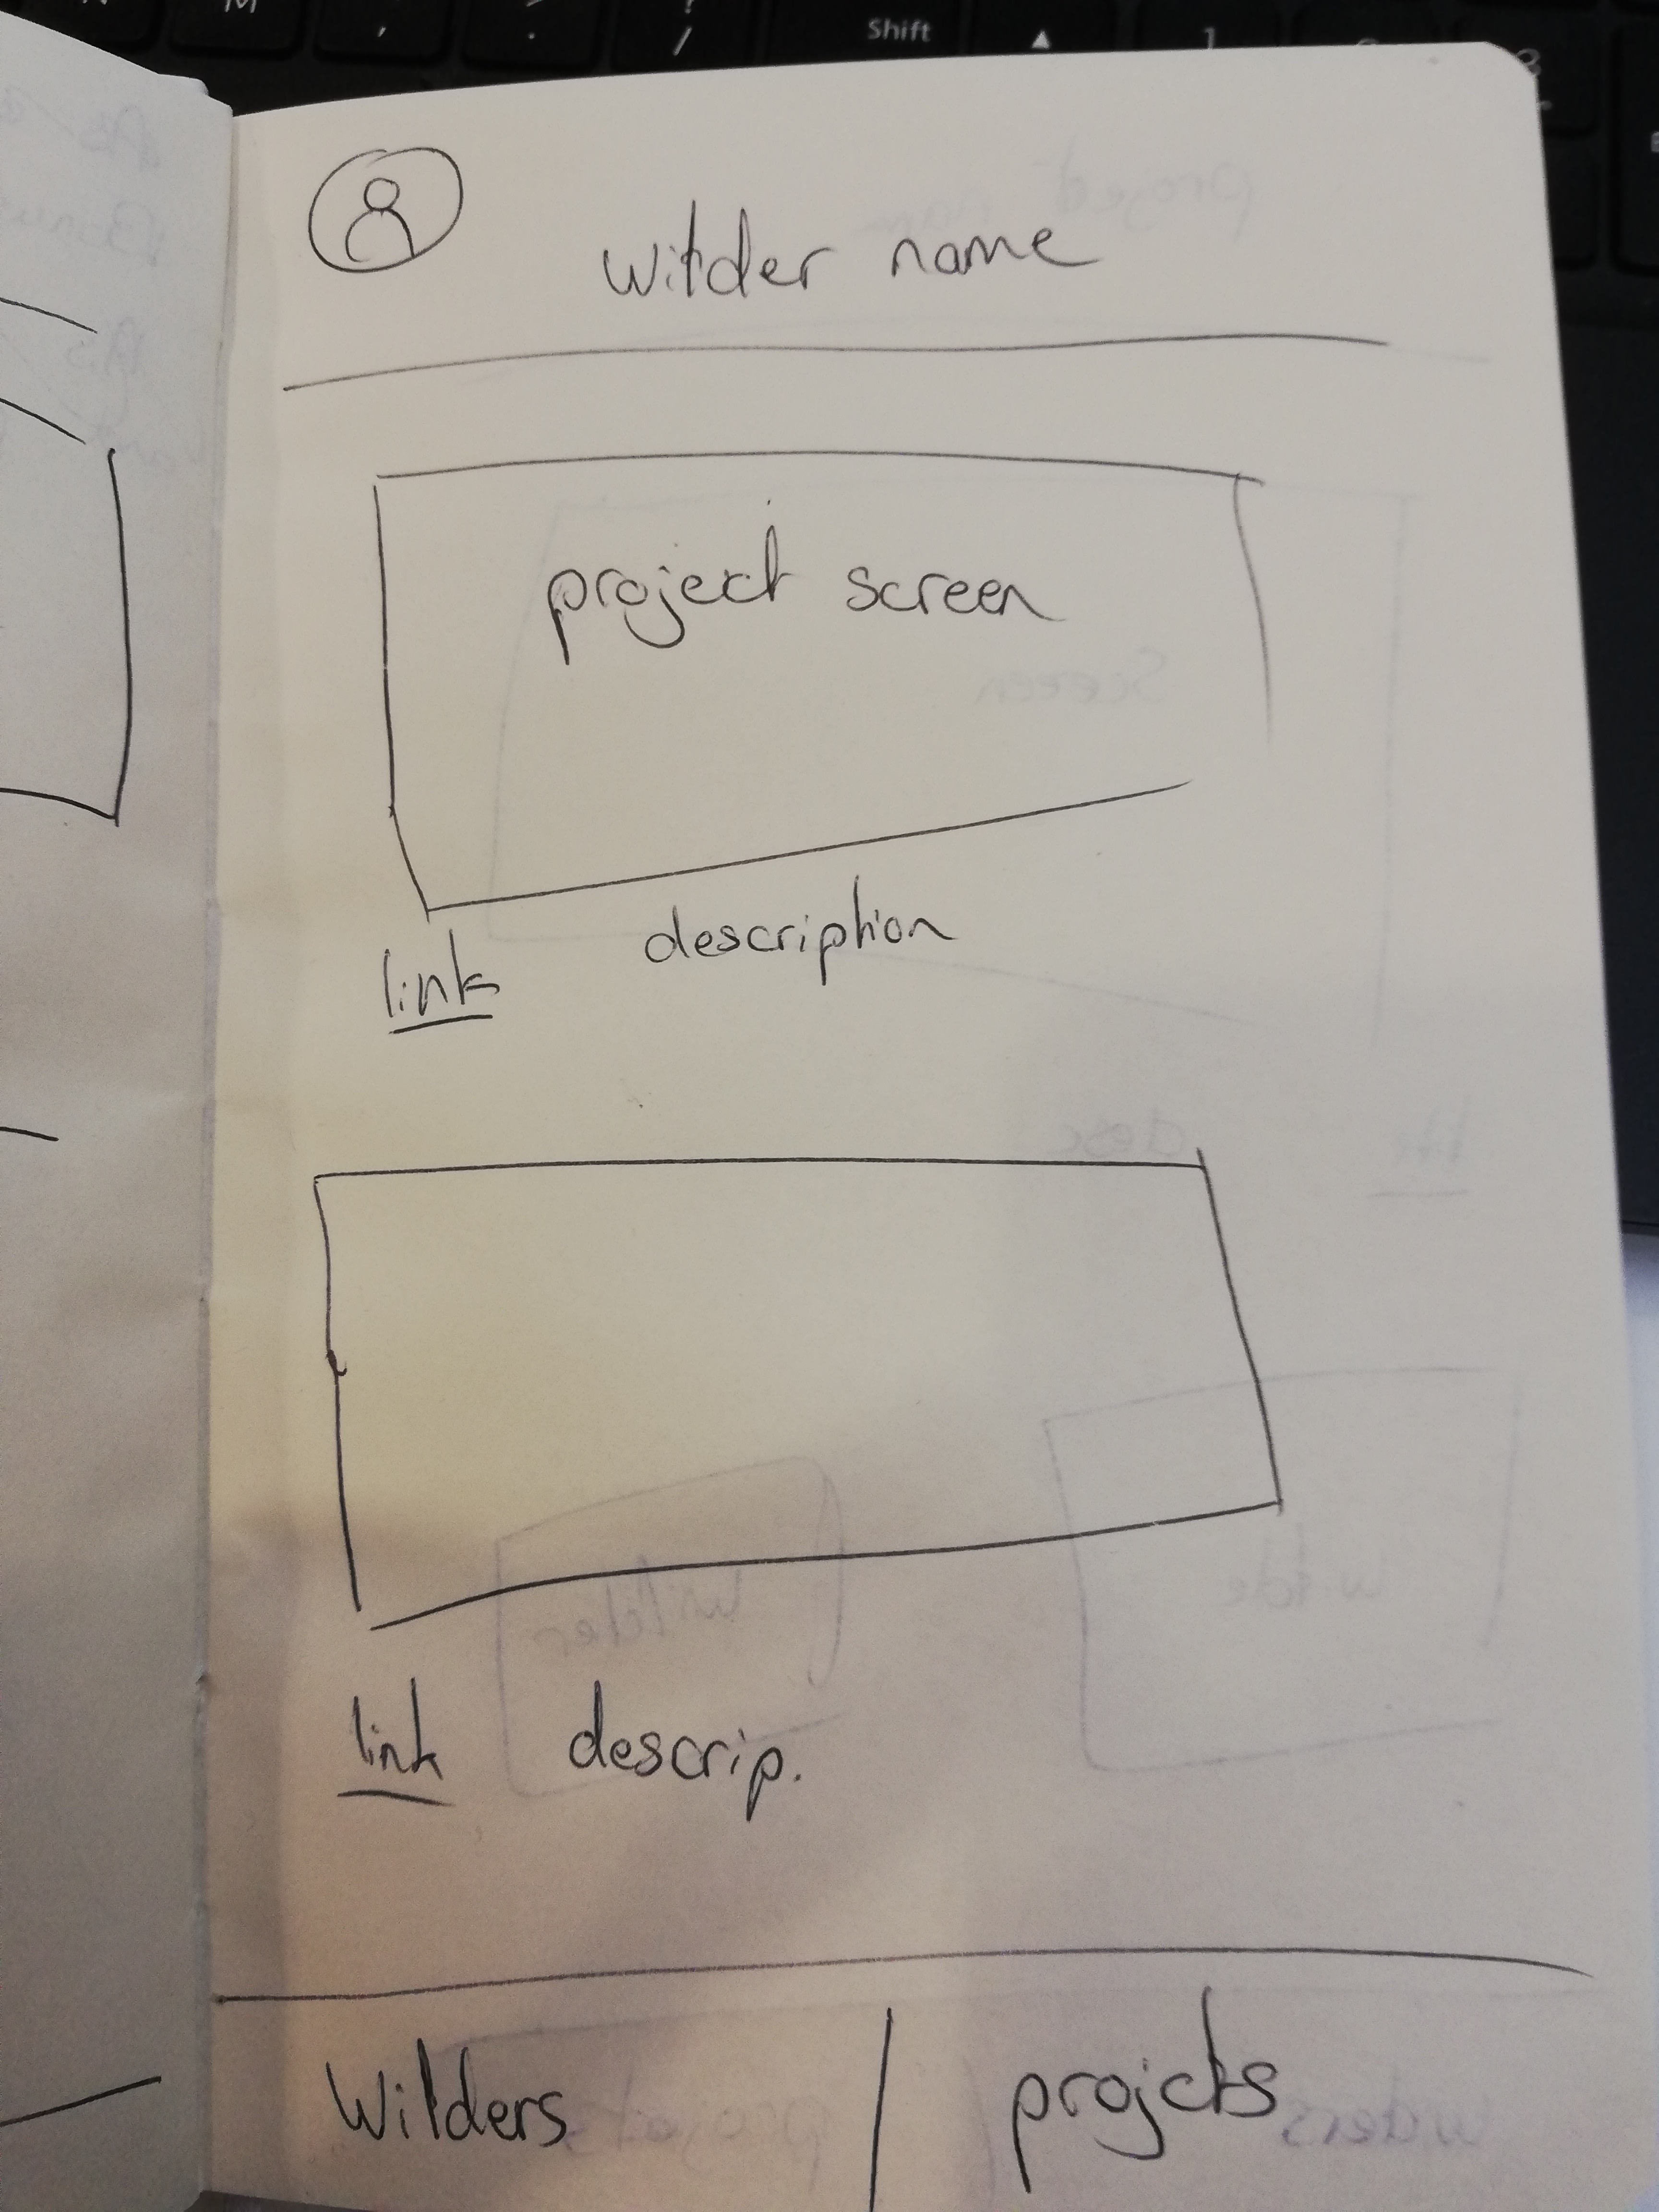 M
, . /
Shift
1
witder name
project screen
description
link
link descrip.
Wilders projcts